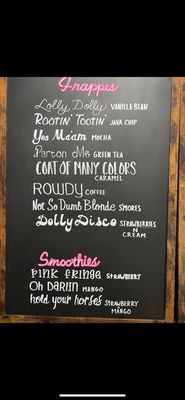 Frappes
Lolly Dolly VANILLA BEAN
ROOTIN' TOOTIN' JAVA CHIP
Yes Ma'am MOCHA
Parton Me GREEN TEA
COAT OF MANY COLORS
CARAMEL
ROWDY COFFEE
Not So Dumb Blonde S'MORES
Dolly Disco STRAWBERRIES
N
CREAM
Smoothies
PINK FRINGE STRAWBERRY
Oh Darlin MANGO
hold your horses STRAWBERRY
MANGO